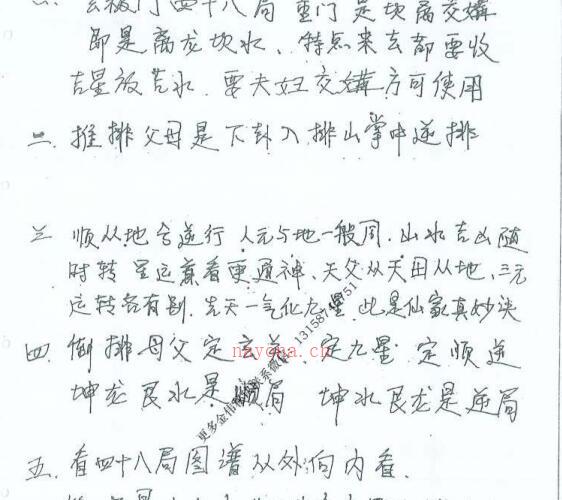 玄秘门四十八局 重门是坎离交媾
即是离龙坎水、特点来去都要收
吉星放吉水.要夫妇交媾方可使用
二.推排父母是下卦入排山掌中逆排
三 顺从地含逆行 人元与地一般同.山水吉凶随
时转 星运兼看更通神、天父从天母从地、三元
运转各有别.先天一气化九星 此是仙家真妙诀
四.倒排母父定 定九星 定顺逆
坤龙艮水是 局 坤水艮龙是逆局
五.看四十八局图谱从外向内看.
nayona.cn